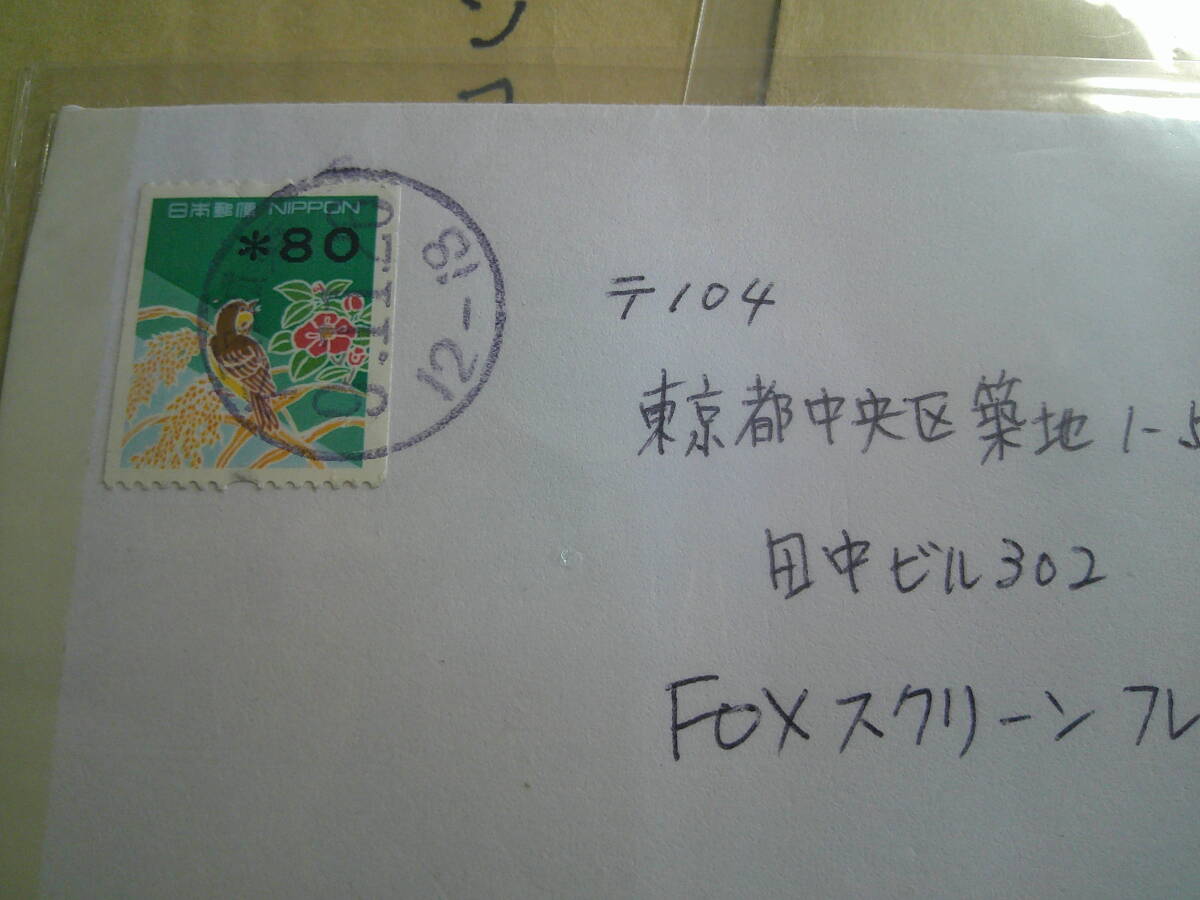 ンコ
日本郵便 NIPPON
*80
12-18
〒104
東京都中央区築地1-5
田中ビル302
FOXスクリーンフレ